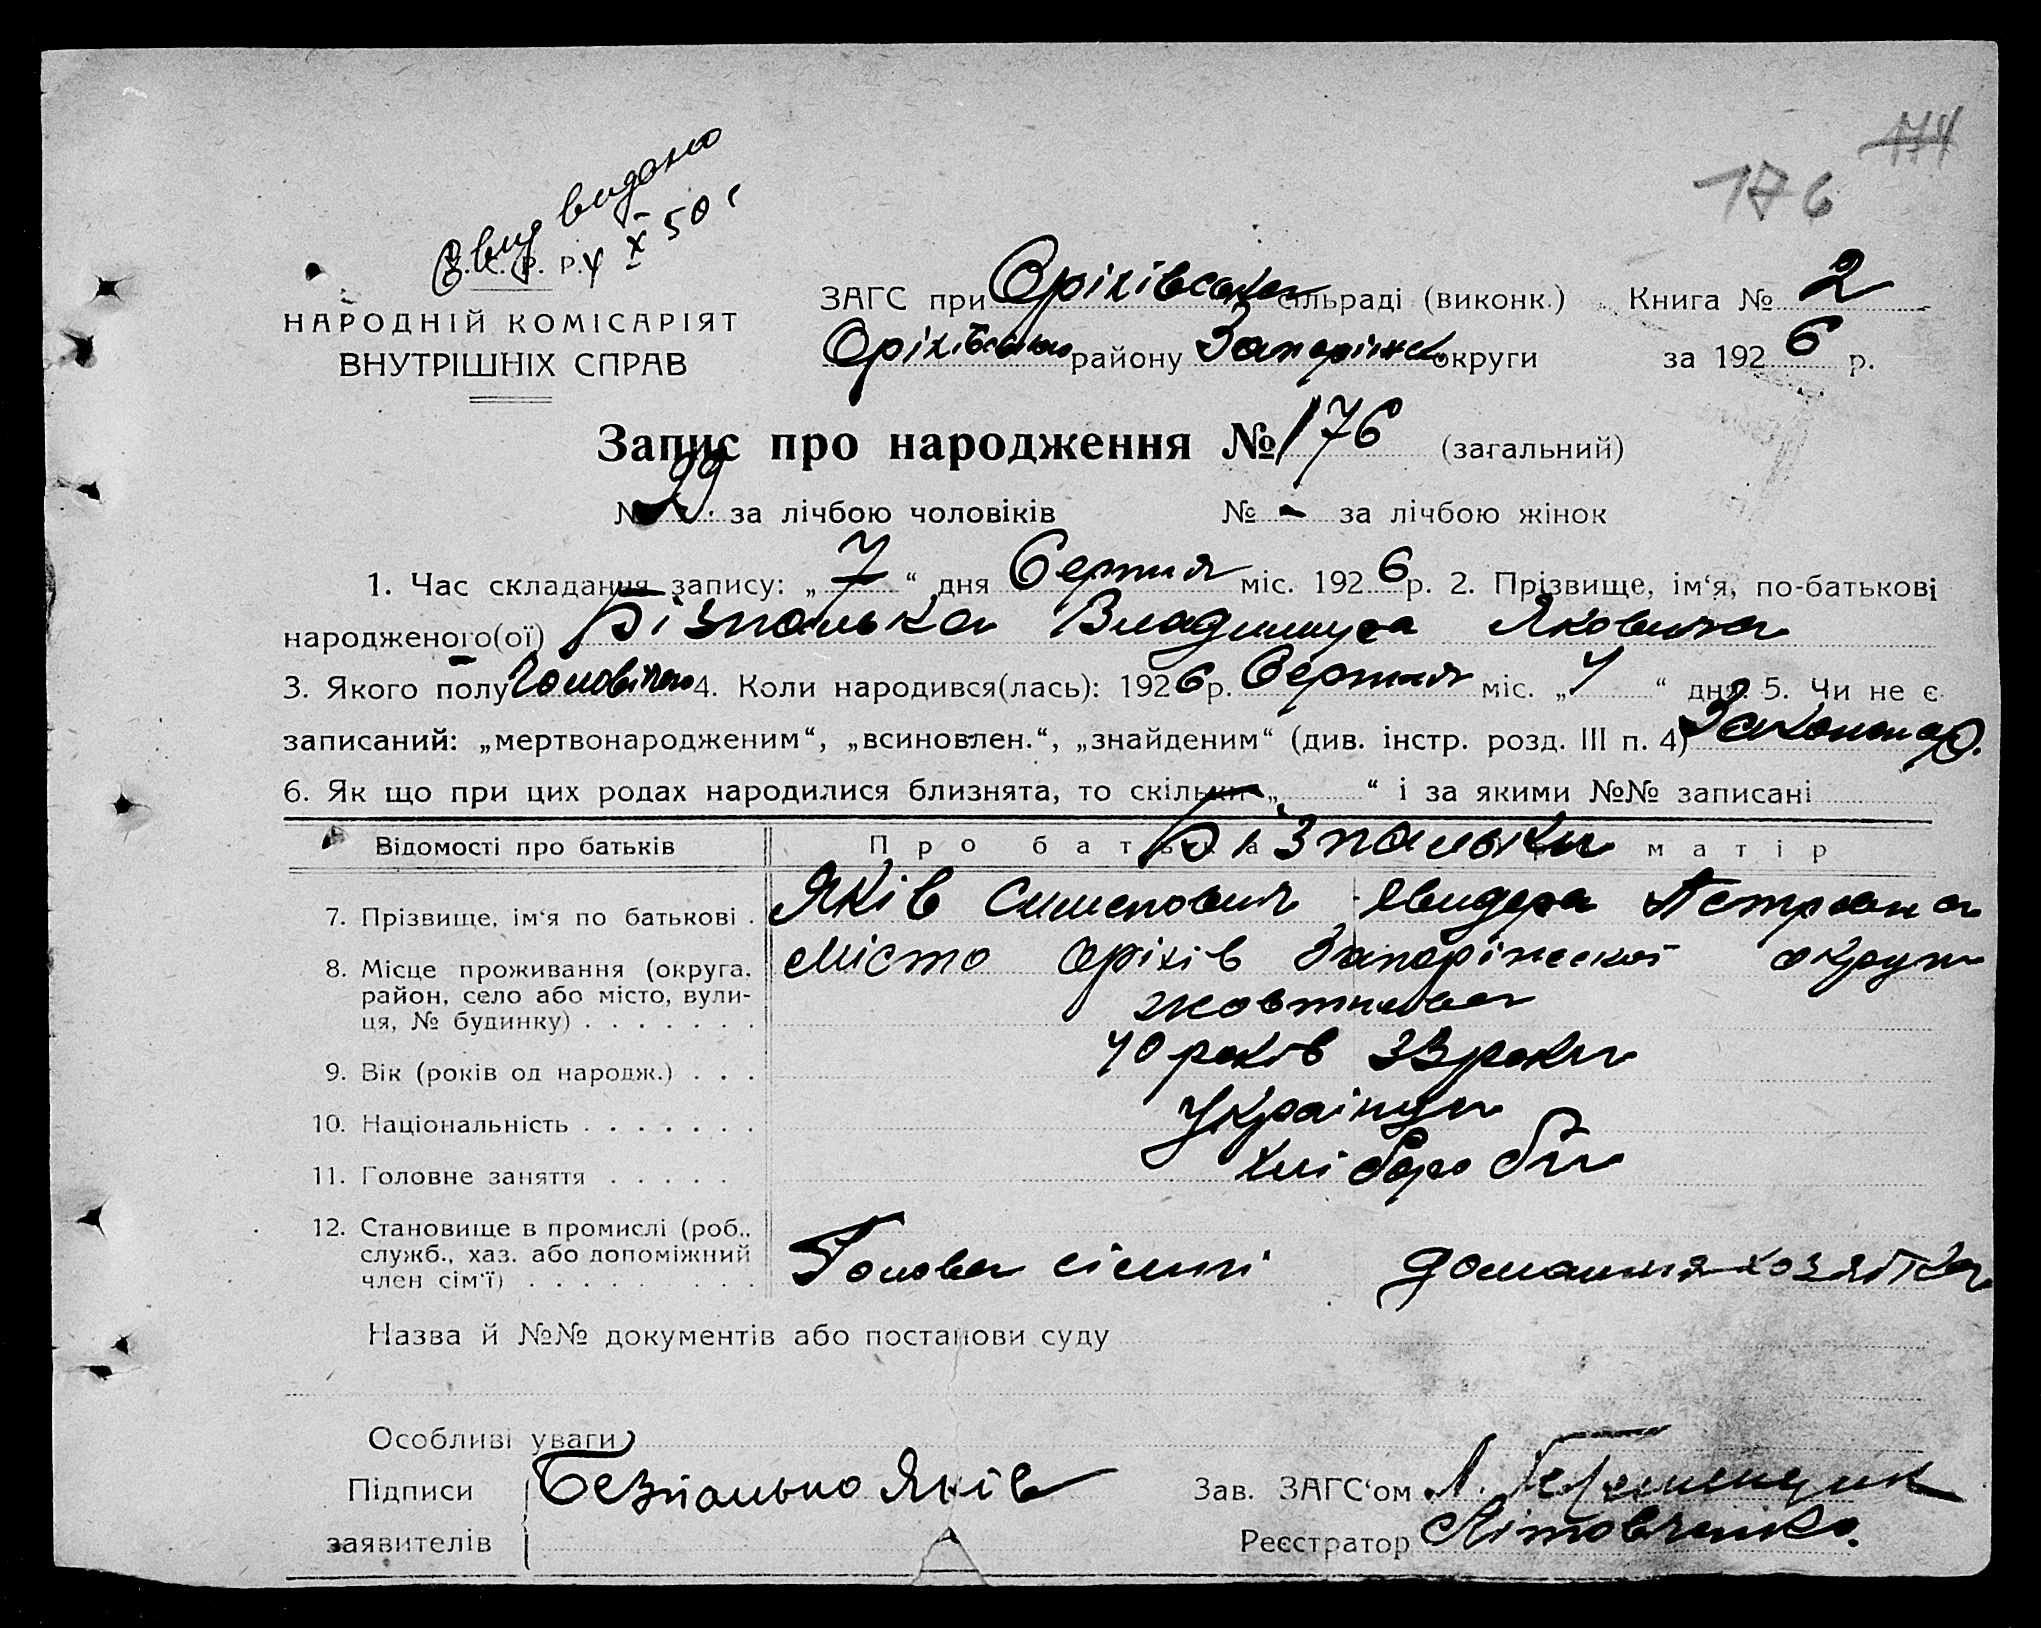 174
176
Свид видано
4 X 50 г
У. С. Р. Р.
НАРОДНІЙ КОМІСАРІЯТ
ВНУТРІШНІХ СПРАВ
ЗАГС при Оріхівській сільраді (виконк.) Книга № 2
Оріхівського району Запоріжськ округи за 1926 р.
Запис про народження № 176 (загальний)
№ 99 за лічбою чоловіків № - за лічбою жінок
1. Час складання запису: „7“ дня Серпня міс. 1926 р. 2. Прізвище, ім‘я, по-батькові
народженого(ої) Бізпалька Владимира Яковича
3. Якого полу Чоловічого 4. Коли народився(лась): 1926 р. Серпня міс. „4“ дня. 5. Чи не є
записаний: „мертвонародженим“, „всиновлен.“, „знайденим“ (див. інстр. розд. III п. 4)
6. Як що при цих родах народилися близнята, то скільки „ “ і за якими №№ записані
Відомості про батьків Про батька матір
Бізпальки
7. Прізвище, ім‘я по батькові . Яків Сименович Петровна
8. Місце проживання (округа, місто Оріхів Запоріжської округи
район, село або місто, вули-
ця, № будинку) . . . . . . . Жовтнева
9. Вік (років од народж.) . . . 40 років 33 роки
10. Національність . . . . . . . Українци
11. Головне заняття . . . . . хлібороби
12. Становище в промислі (роб.,
служб., хаз. або допоміжний
член сім‘ї) . . . . . . . . . Голова сімпі домашня хозяйка
Назва й №№ документів або постанови суду
Особливі уваги
Підписи Безпалько Яків Зав. ЗАГС‘ом
заявителів Реєстратор Літовченко.